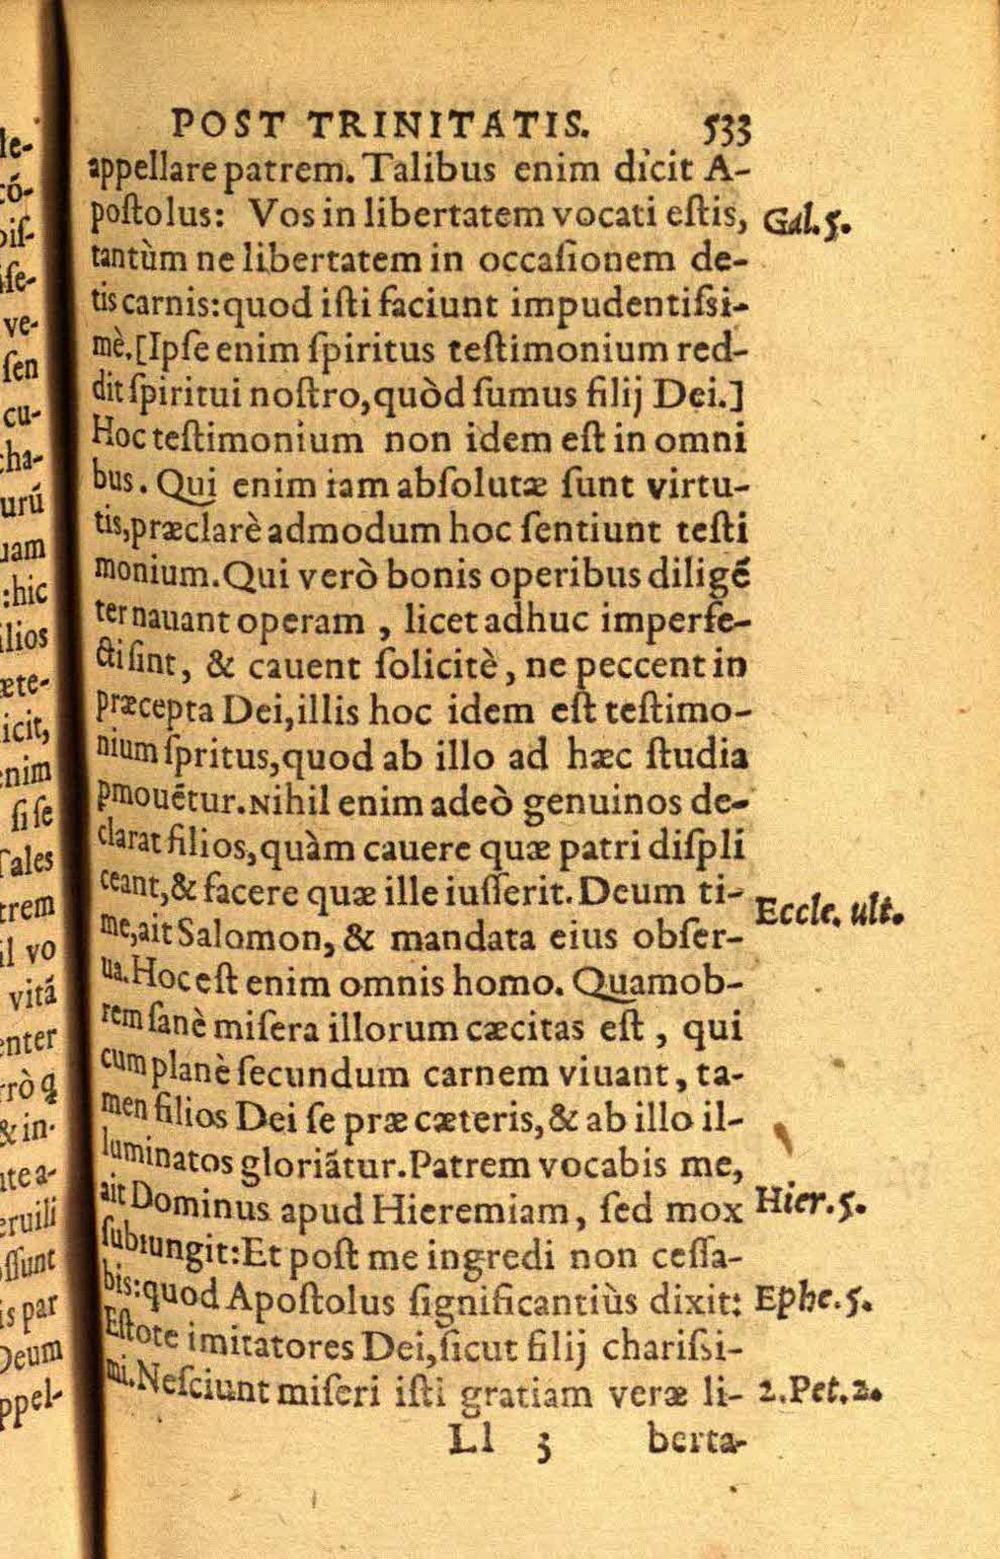 POST TRINITATIS. 533
appellare patrem. Talibus enim dicit A-
poſtolus: Vos in libertatem vocati eſtis, Gal. 5.
tantùm ne libertatem in occaſionem de-
tis carnis: quod iſti faciunt impudentiſsi-
mè. [Ipſe enim ſpiritus teſtimonium red-
dit ſpiritui noſtro, quòd ſumus filij Dei.]
Hoc teſtimonium non idem eſt in omni
bus. Qui enim iam abſolutæ ſunt virtu-
tis, præclarè admodum hoc ſentiunt teſti
monium. Qui verò bonis operibus diligẽ
ter nauant operam, licet adhuc imperfe-
cti ſint, & cauent ſolicitè, ne peccent in
præcepta Dei, illis hoc idem eſt teſtimo-
nium ſpritus, quod ab illo ad hæc ſtudia
ꝓmouẽtur. Nihil enim adeò genuinos de-
clarat filios, quàm cauere quæ patri diſpli
ceant, & facere quæ ille iuſſerit. Deum ti- Eccle. ult.
me, ait Salomon, & mandata eius obſer-
ua. Hoc eſt enim omnis homo. Quamob-
rem ſanè miſera illorum cæcitas eſt, qui
cum planè ſecundum carnem viuant, ta-
men filios Dei ſe præ cæteris, & ab illo il-
luminatos gloriãtur. Patrem vocabis me,
ait Dominus apud Hieremiam, ſed mox Hier. 5.
ſubiungit: Et poſt me ingredi non ceſſa-
bis: quod Apoſtolus ſignificantiùs dixit: Ephe. 5.
Eſtote imitatores Dei, ſicut filij chariſsi-
mi. Neſciunt miſeri iſti gratiam veræ li- 2. Pet. 2.
Ll 3 berta-